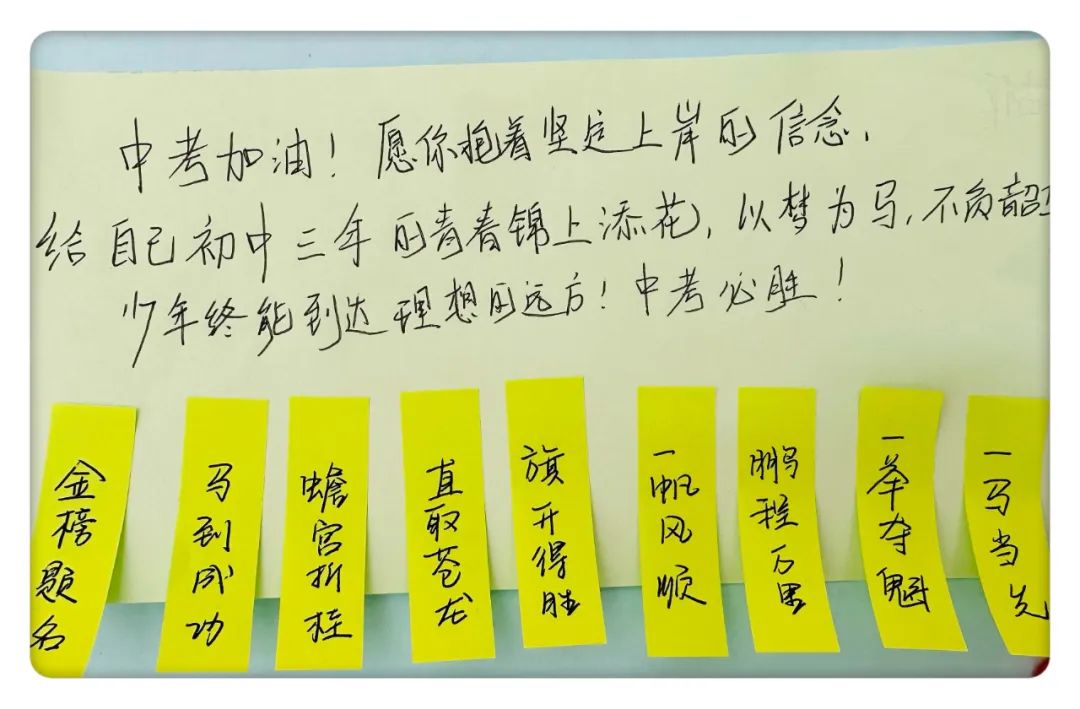 中考加油！愿你抱着坚定上岸的信念，
给自己初中三年的青春锦上添花，以梦为马，不负韶
少年终能到达理想的远方！中考必胜！
金榜题名
马到成功
蟾宫折桂
直取苍龙
旗开得胜
一帆风顺
鹏程万里
一举夺魁
一马当先